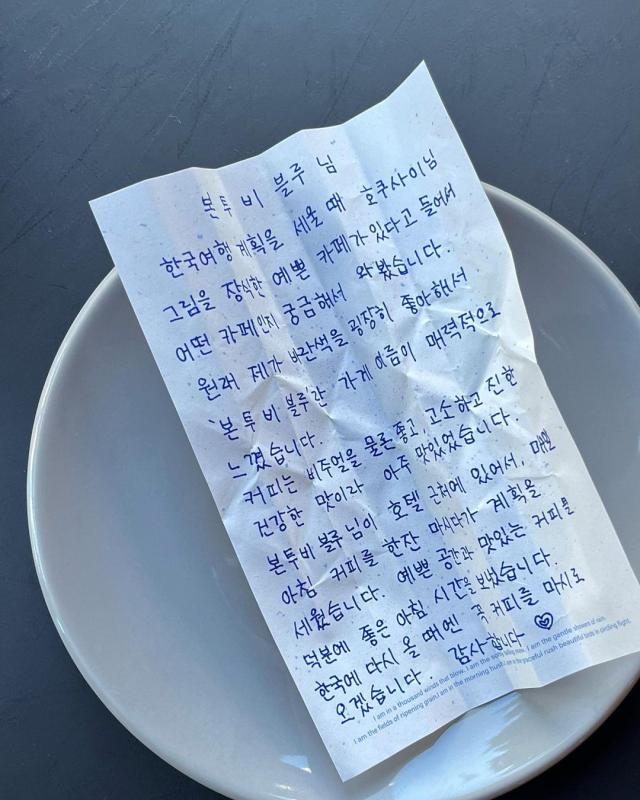 본투비 블루 님
한국여행 계획을 세울 때 호쿠사이님
그림을 장식한 예쁜 카페가 있다고 들어서
어떤 카페인지 궁금해서 와봤습니다.
원래 제가 파란색을 굉장히 좋아해서
"본투비 블루"란 가게 이름이 매력적으로
느꼈습니다.
커피는 비주얼을 물론 좋고, 고소하고 진한
건강한 맛이라 아주 맛있었습니다.
본투비 블루 님이 호텔 근처에 있어서, 매일
아침 커피를 한잔 마시다가 계획을
세웠습니다. 예쁜 공간과 맛있는 커피를
덕분에 좋은 아침 시간을 보냈습니다.
한국에 다시 올 때엔 꼭 커피를 마시로
오겠습니다. 감사합니다
I am in a thousand winds that blow, I am the softly falling snow. I am the gentle showers of rain,
I am the fields of ripening grain. I am in the morning hush, I am in the graceful rush beautiful birds in circling flight,